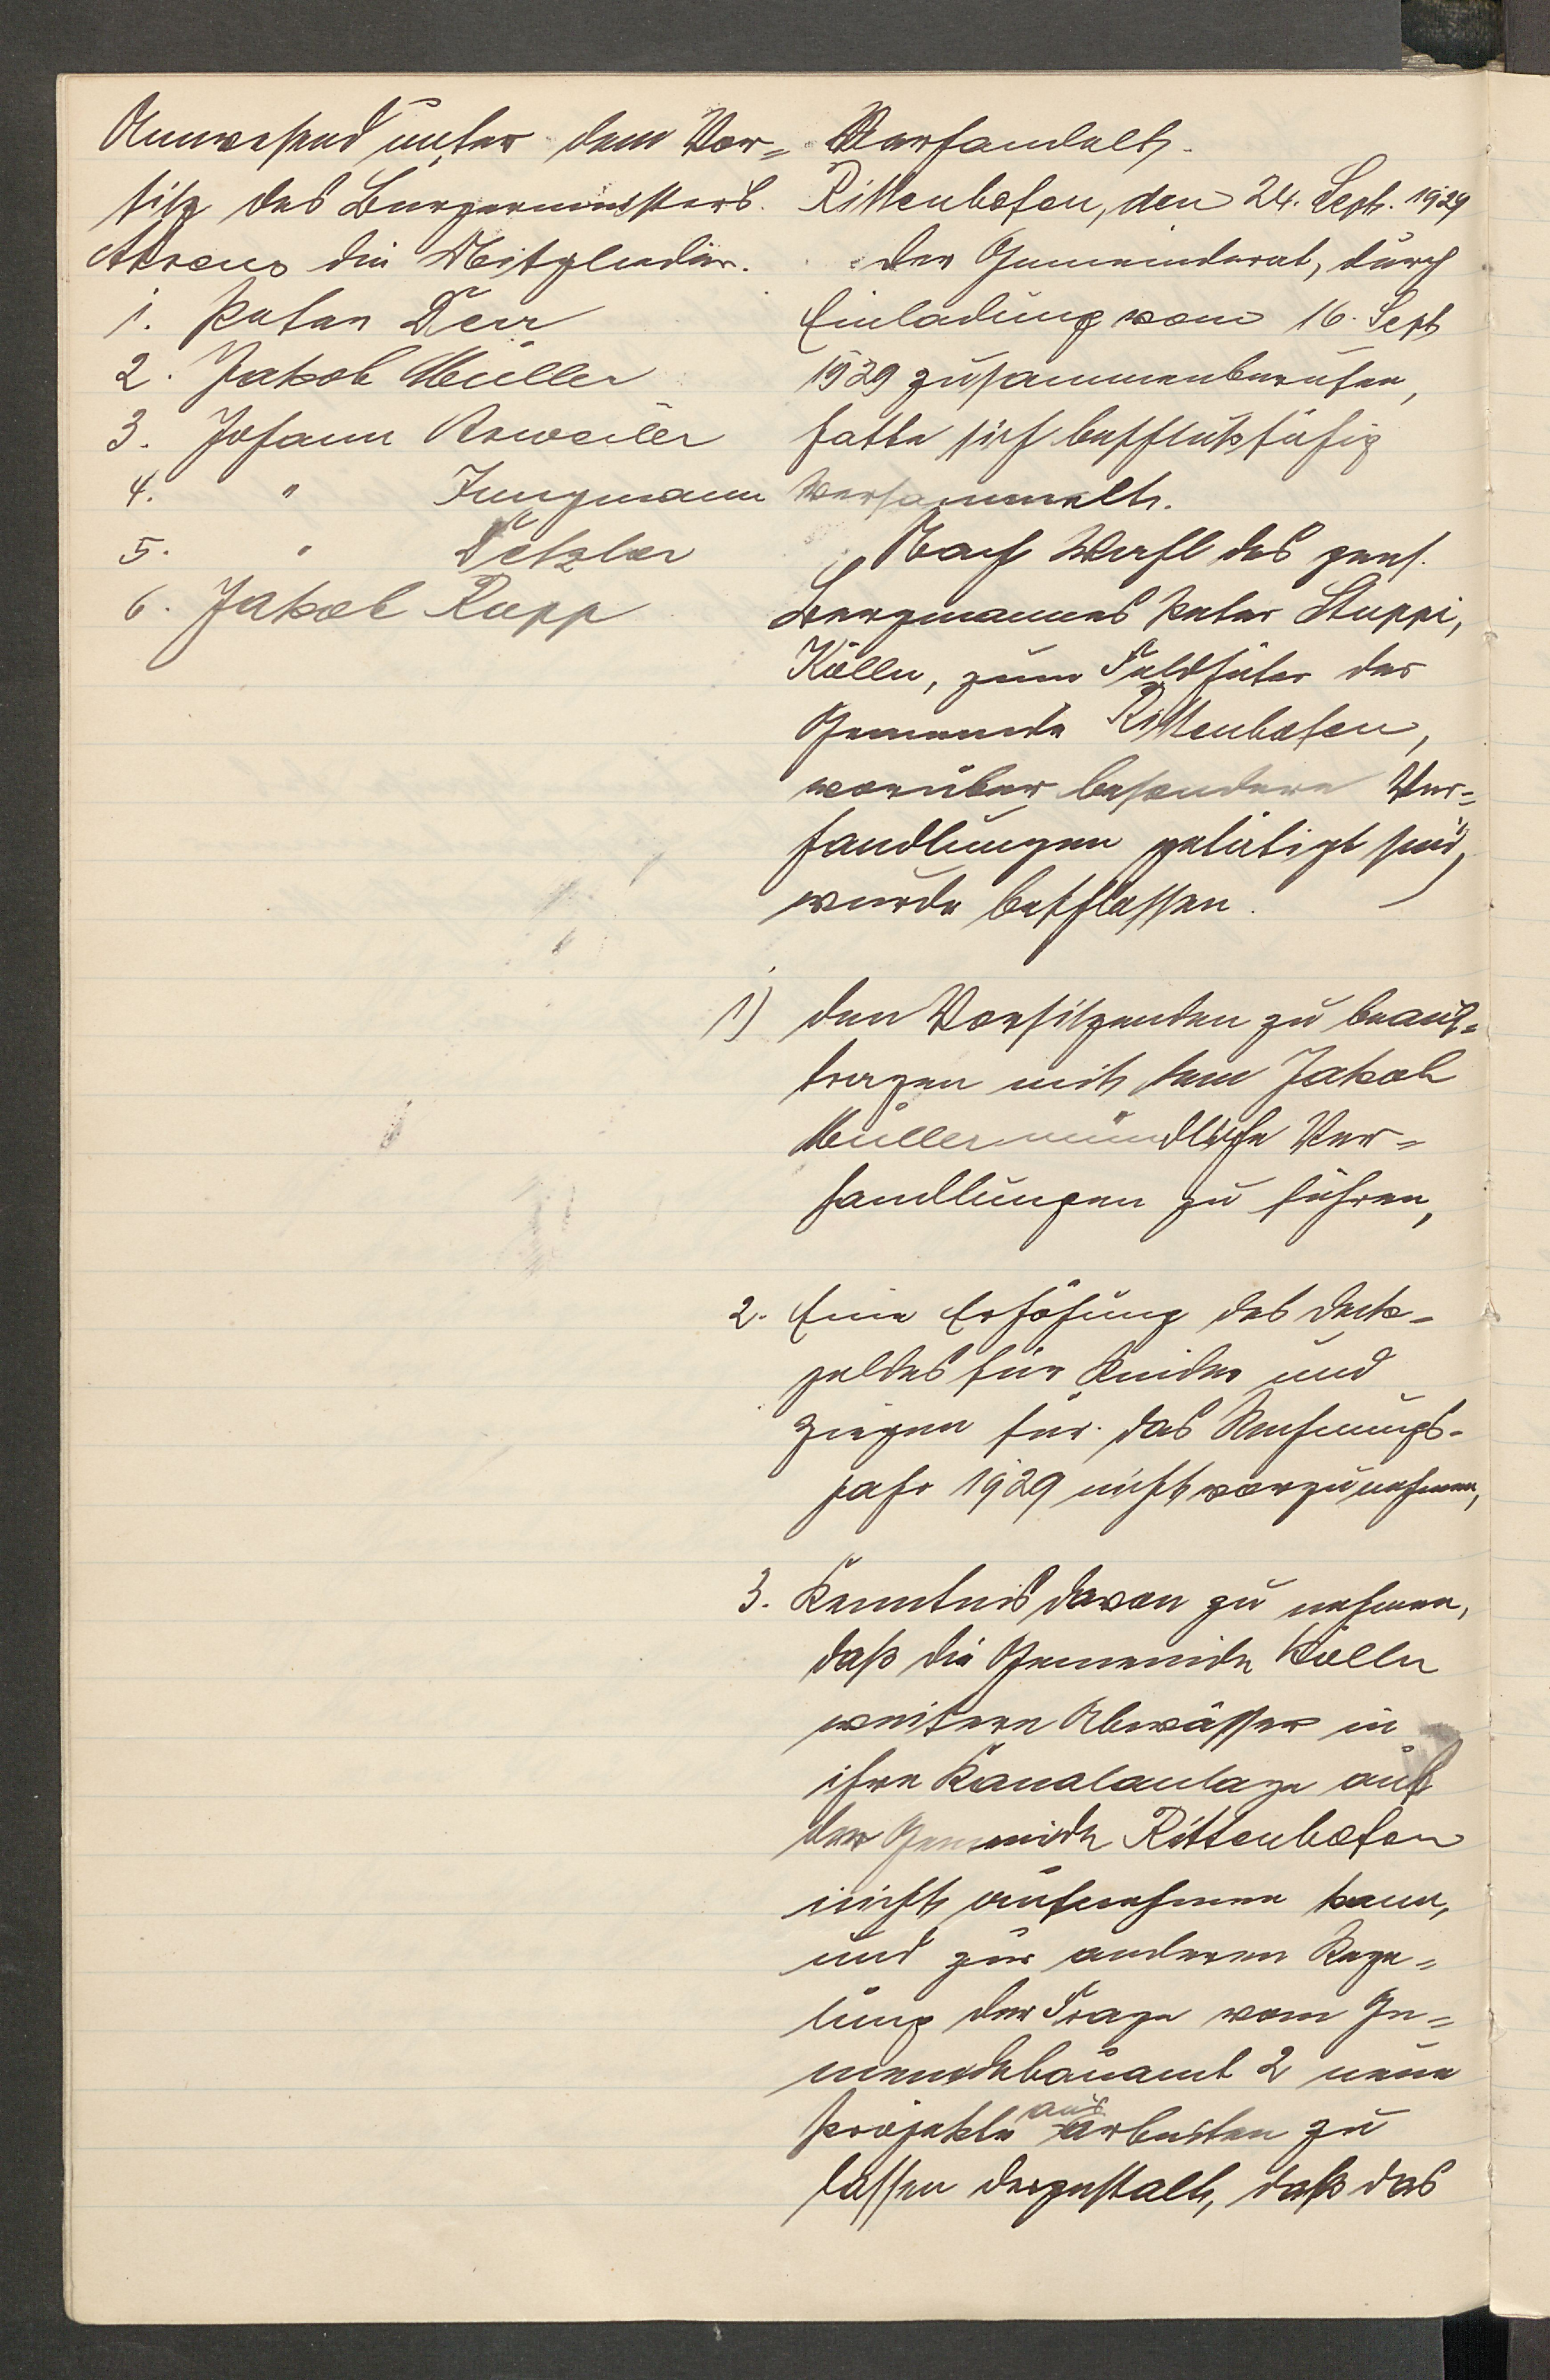 Anwesend unter dem Vor-
sitz des Bürgermeisters
Ahrens die Mitglieder.
1. Peter Derr
2. Jakob Müller
3. Johann Arweiler
4. " Jungmann
5. " Detzler
6. Jakob Rupp
Verhandelt.
Rittenhofen, den 24. Sept. 1929
Der Gemeinderat, durch
Einladung vom 16. Sept
1929 zusammenberufen,
hatte sich beschlußfähig
versammelt.
Nach Wahl des pens.
Bergmannes Peter Stuppi,
Kölln, zum Feldhüter der
Gemeinde Rittenhofen,
worüber besondere Ver-
handlungen getätigt sind,
wurde beschlossen.
1) den Vorsitzenden zu beauf-
tragen mit dem Jakob
Müller mündliche Ver-
handlungen zu führen,
2. Eine Erhöhung des Deck-
geldes für Rinder und
Ziegen für das Rechnungs-
jahr 1929 nicht vorzunehmen,
3. Kenntnis davon zu nehmen,
daß die Gemeinde Kölln
weitere Abwässer in
ihre Kanalanlage aus
der Gemeinde Rittenhofen
nicht aufnehmen kann,
und zur anderen Rege-
lung der Frage vom Ge-
meindebauamt 2 neue
Projekte ausarbeiten zu
lassen dergestalt, daß das